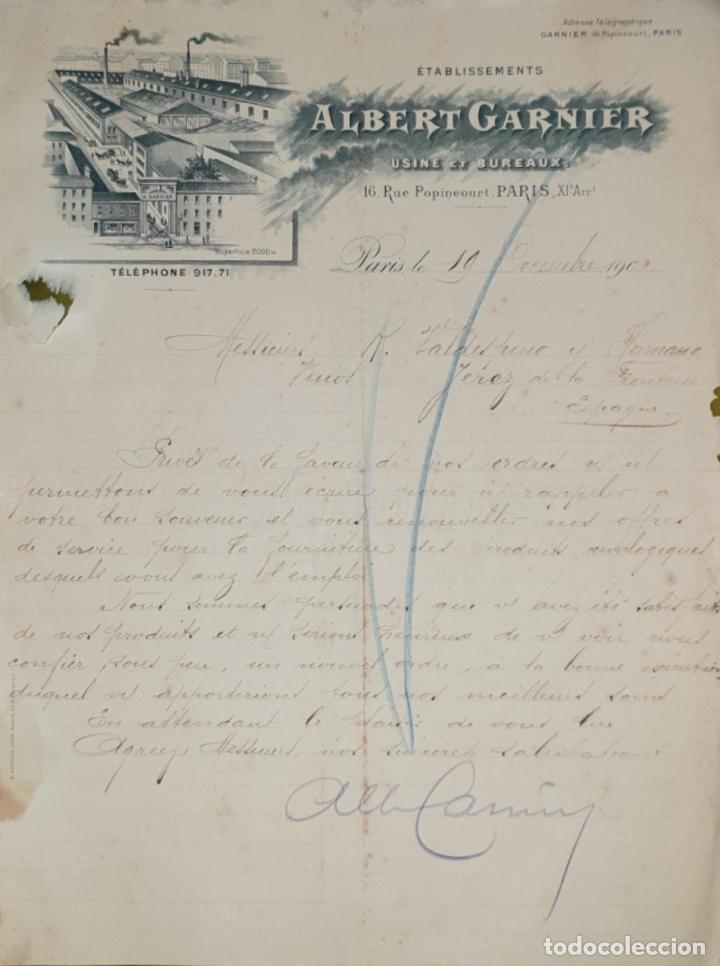 Adresse Télégraphique
GARNIER, 16, Popincourt, PARIS
ÉTABLISSEMENTS
ALBERT GARNIER
USINE ET BUREAUX.
16, Rue Popincourt, PARIS, XIe Arrt
A. GARNIER
Superficie 2000 m
TÉLÉPHONE 917.71
Paris, le 19 Décembre 190
Messieurs R. Valdespino y Hermano
Vinos Jérez de la Frontera
Espagne
Privés de la faveur de vos ordres n/ n/
permettons de vous écrire pour n/ rappeler à
votre bon souvenir et vous renouveller nos offres
de service pour la fourniture des produits œnologiques
desquels vous avez l'emploi
Nous sommes persuadés que v/ avez été satisfaits
de nos produits et n/ serions heureux de v/ voir nous
confier, sous peu, un nouvel ordre, à la bonne exécution
duquel n/ apporterions tous nos meilleurs soins
En attendant le plaisir de vous lire
Agréez, Messieurs, nos sincères salutations
Alb Garnier
todocoleccion